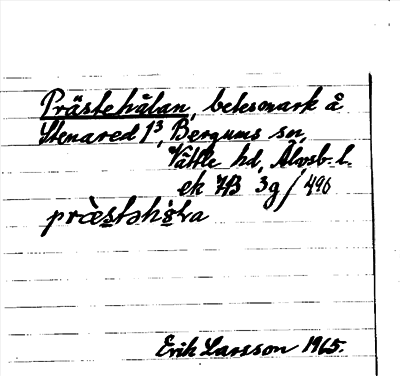 Prästehålan, betesmark å
Stenared 1³, Bergums sn,
Vättle hd, Älvsb. l.
ek 7B 3g / 490
Erik Larsson 1965.